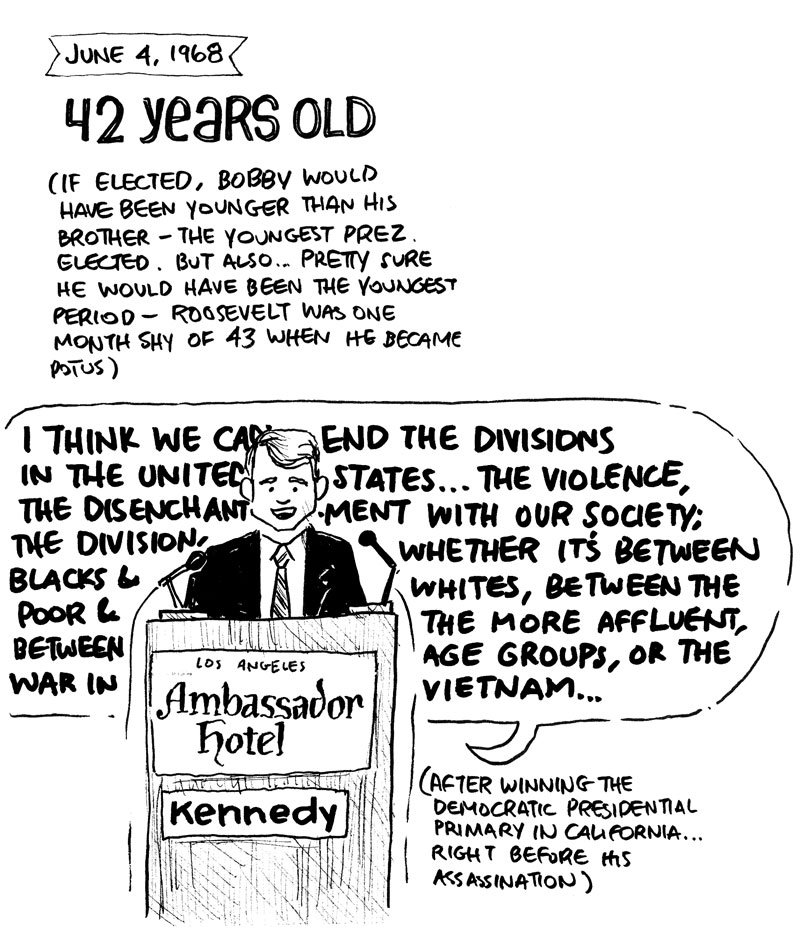 JUNE 4, 1968
42 YEARS OLD
(IF ELECTED, BOBBY WOULD
HAVE BEEN YOUNGER THAN HIS
BROTHER - THE YOUNGEST PREZ.
ELECTED. BUT ALSO... PRETTY SURE
HE WOULD HAVE BEEN THE YOUNGEST
PERIOD - ROOSEVELT WAS ONE
MONTH SHY OF 43 WHEN HE BECAME
POTUS)
I THINK WE CAN END THE DIVISIONS
IN THE UNITED STATES... THE VIOLENCE,
THE DISENCHANTMENT WITH OUR SOCIETY;
THE DIVISION, WHETHER IT'S BETWEEN
BLACKS & WHITES, BETWEEN THE
POOR & THE MORE AFFLUENT,
BETWEEN AGE GROUPS, OR THE
WAR IN VIETNAM...
LOS ANGELES
Ambassador
Hotel
Kennedy
(AFTER WINNING THE
DEMOCRATIC PRESIDENTIAL
PRIMARY IN CALIFORNIA...
RIGHT BEFORE HIS
ASSASSINATION)